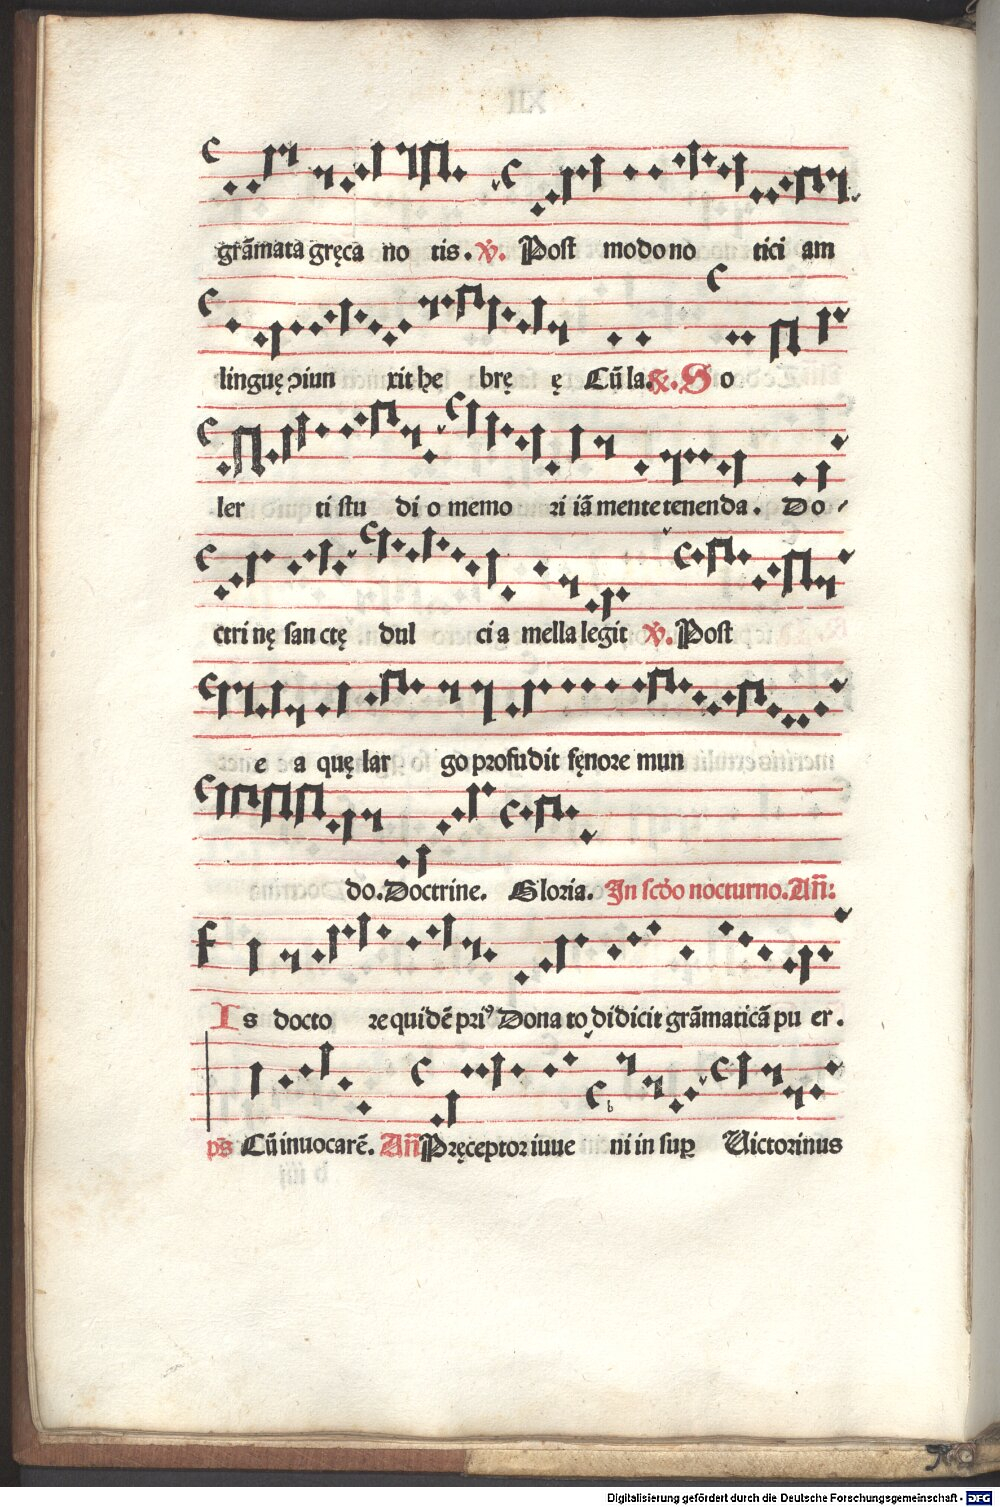 grãmata gręca no tis. ℣. Post modo no tici am
linguę ↄiun xit hę brę ę Cũ la. ℟. So
ler ti stu di o memo ri iã mente tenenda. Do-
ctri nę san ctę dul ci a mella legit ℣. Post
e a quę lar go profudit fęnore mun
do. Doctrine. Gloria. In scďo nocturno. Añ:
Is docto re quidẽ priꝰ Dona to didicit grãmaticã pu er.
ps̃ Cũ inuocarẽ. Añ Pręceptor iuue ni in suꝑ Victorinus
Digitalisierung gefördert durch die Deutsche Forschungsgemeinschaft - DFG